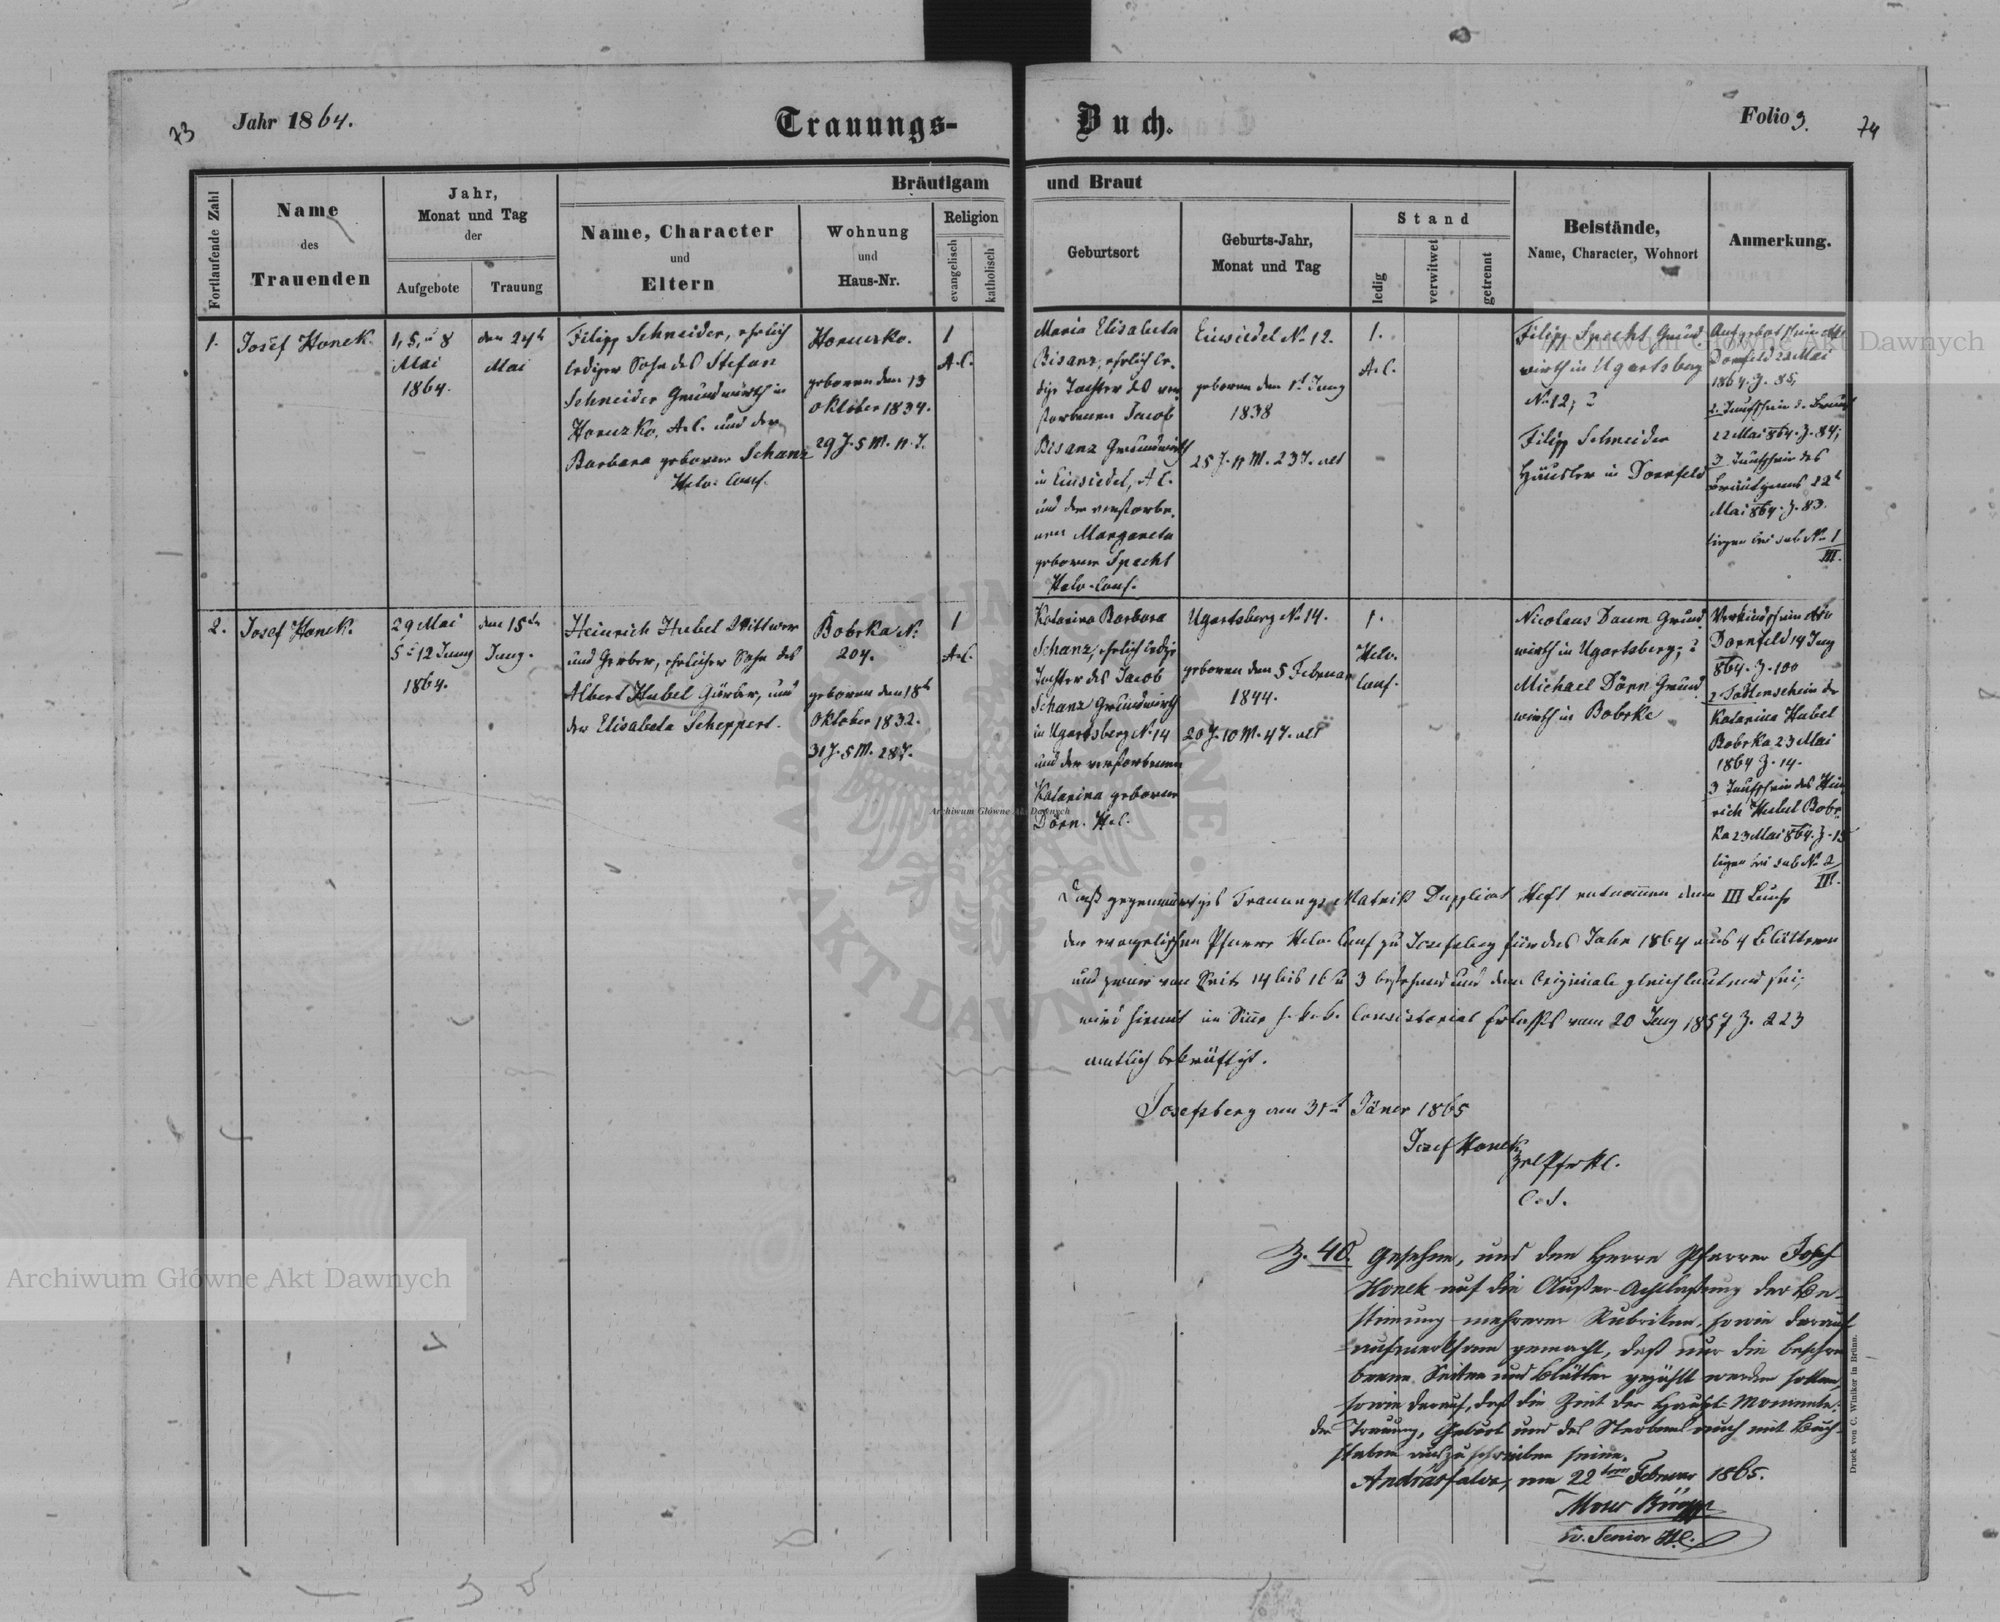 73
Jahr 1864.
Trauungs-
Buch.
Folio 3.
74
Fortlaufende Zahl
Name
des
Trauenden
Jahr,
Monat und Tag
der
Aufgebote
Trauung
Bräutigam
und Braut
Name, Character
und
Eltern
Wohnung
und
Haus-Nr.
Religion
evangelisch
katholisch
Geburtsort
Geburts-Jahr,
Monat und Tag
Stand
ledig
verwitwet
getrennt
Beistände,
Name, Character, Wohnort
Anmerkung.
1.
Josef Honek.
1, 5, u 8
Mai
1864.
den 24t
Mai
Filipp Schneider, ehrlich
lediger Sohn des Stefan
Schneider Grundwirth in
Horuzko, A.C. und der
Barbara geborene Schanz
Helv. Conf.
Horuzko.
geboren den 13
Oktober 1834.
29 J. 5 M. 11 T.
1
A.C.
Maria Elisabeta
Bisanz, ehrlich le-
dige Tochter des ver-
storbenen Jacob
Bisanz Grundwirth
in Einsiedel, A C.
und der verstorbe-
nen Margareta
geborene Specht
Helv. Conf.
Einsiedel No 12.
geboren den 1t Juny
1838
25 J. 11 M. 23 T. alt
1.
A.C.
Filipp Specht Grund
wirth in Ugartsberg
No 12; u
Filipp Schneider
Häusler in Dornfeld
Dornfeld 22 Mai
1864. Z. 85,
2. Taufschein d. Braut
22 Mai 864. Z. 84;
3 Taufschein des
Bräutigams 22t
Mai 864. Z. 83.
liegen bei sub No 1
III.
2.
Josef Honek.
29 Mai
5 u 12 Juny
1864.
den 15ten
Juny.
Heinrich Hubel Wittwer
und Gerber, ehelicher Sohn des
Albert Hubel Gärber, und
der Elisabeta Scheppert.
Bobrka No
204.
geboren den 18t
Oktober 1832.
31 J. 5 M. 28 T.
1
A.C.
Katarina Barbara
Schanz, ehrlich ledige
Tochter des Jacob
Schanz Grundwirth
in Ugartsberg No 14
und der verstorbenen
Katarina geborene
Dörn. H.C.
Ugartsberg No 14.
geboren den 5 Februar
1844.
20 J. 10 M. 4 T. alt
1.
Helv.
Conf.
Nicolaus Daum Grund
wirth in Ugartsberg; u
Michael Dörn Grund
wirth in Bobrka
Dornfeld 14 Juny
864. Z. 100
2 Todtenschein der
Katarina Hubel
Bobrka 23 Mai
1864 Z. 14.
3 Taufschein des Hein
rich Hubel Bobr
ka 23 Mai 864. Z. 15
liegen bei sub No 2
III.
Daß gegenwärtiges Trauungs Matrik Duplicat Heft entnommen dem III Buch
der evangelischen Pfarre Helv. Conf zu Josefsberg für das Jahr 1864 aus 4 Blättern
und zwar von Seite 14 bis 16 u 3 bestehend und dem Originale gleichlautend sei;
wird hiemit im Sinne h. k. k. Consistorial Erlasses vom 20 Juny 1857 Z. 223
amtlich bekräftigt.
Josefsberg am 31t Jäner 1865
Josef Honek
C.S.
Z. 40. Gesehen, und den Herrn Pfarrer Josef
Honek auf die Außer-Achtlaßung der Be-
stimung mehrerer Rubriken, sowie darauf
aufmerksam gemacht, daß nur die beschrie
benen Seiten und Blätter gezählt werden sollen,
sowie darauf, daß die Zeit der Haupt-Momente:
der Trauung, Geburt und des Sterbens auch mit Buch-
staben auszuschreiben seien.
Andrásfalva, am 22ten Februar 1865.
Ev. Senior H.C.
Druck von C. Winiker in Brünn.
Archiwum Główne Akt Dawnych
Archiwum Główne Akt Dawnych
Archiwum Główne Akt Dawnych